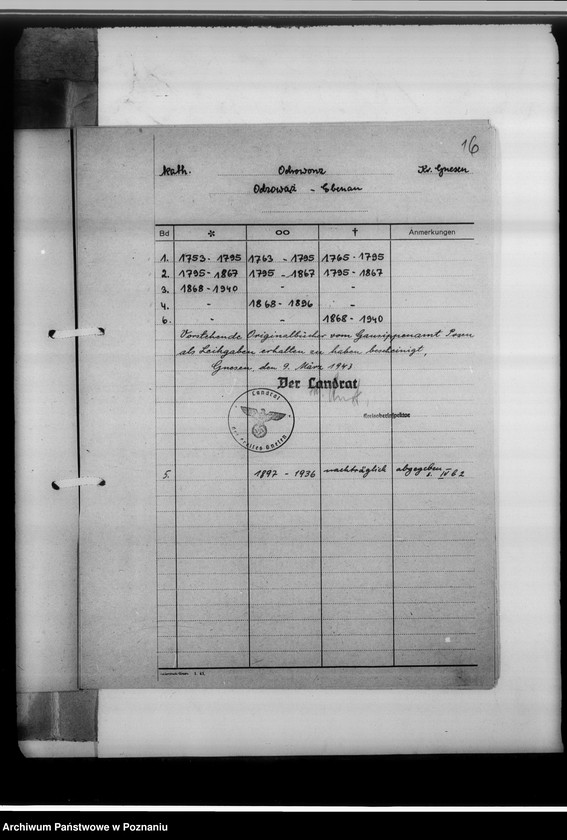 16
Kath. Odrowonz Kr. Gnesen
Odrowąż - Ebenau
Bd * ∞ † Anmerkungen
1. 1753 - 1795 1763 - 1795 1765 - 1795
2. 1795 - 1867 1795 - 1867 1795 - 1867
3. 1868 - 1940 - -
4. - 1868 - 1896 -
6. - - 1868 - 1940
Vorstehende Originalbücher vom Gausippenamt Posen
als Leihgaben erhalten zu haben bescheinigt,
Gnesen, den 9. März 1943
Der Landrat
Kreisoberinspektor
Landrat
des Kreises Gnesen
5. 1897 - 1936 nachträglich abgegeben
s. IV b 2
Archiwum Państwowe w Poznaniu